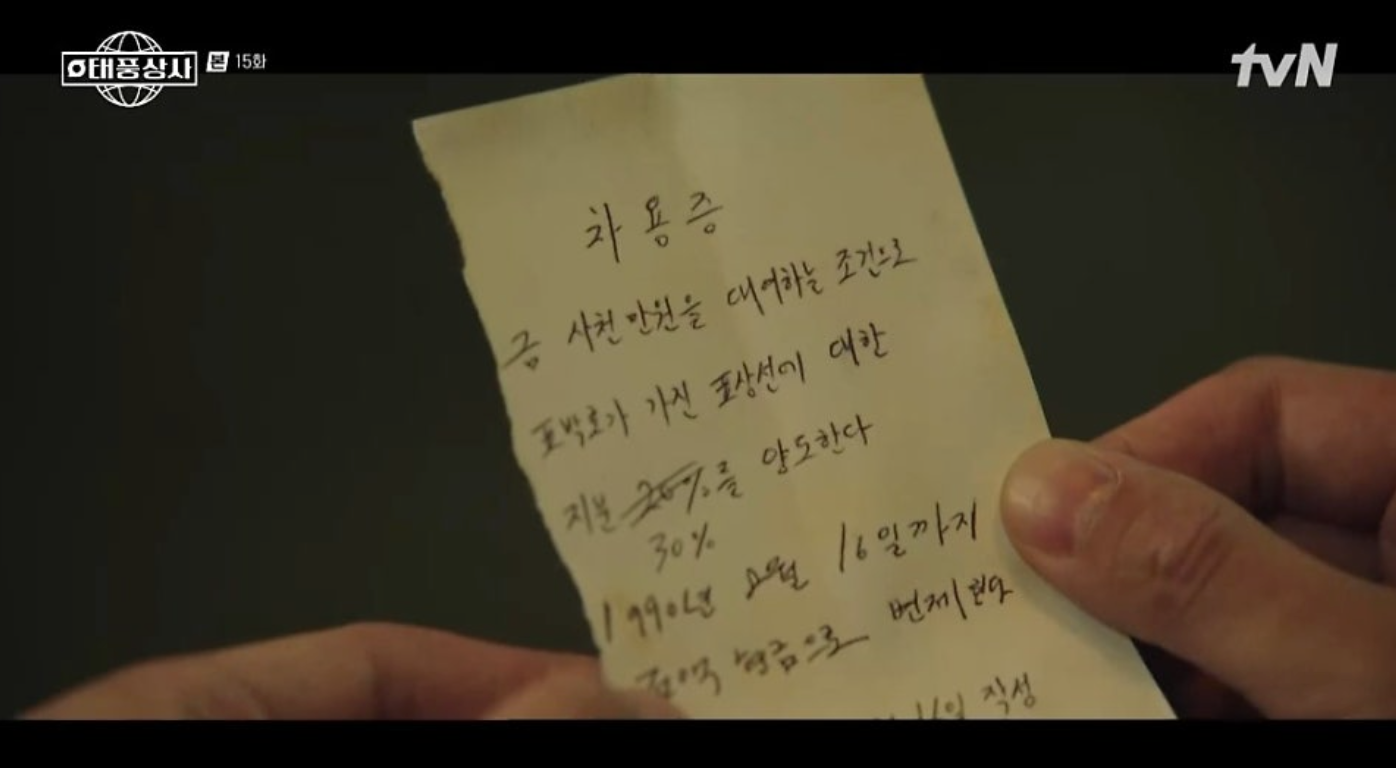 태풍상사 본 15화
tvN
차용증
금 사천만원을 대여하는 조건으로
표박호가 가진 표상선에 대한
지분 20%를 양도한다
30%
1990년 2월 16일까지
전액 현금으로 변제
16일 작성